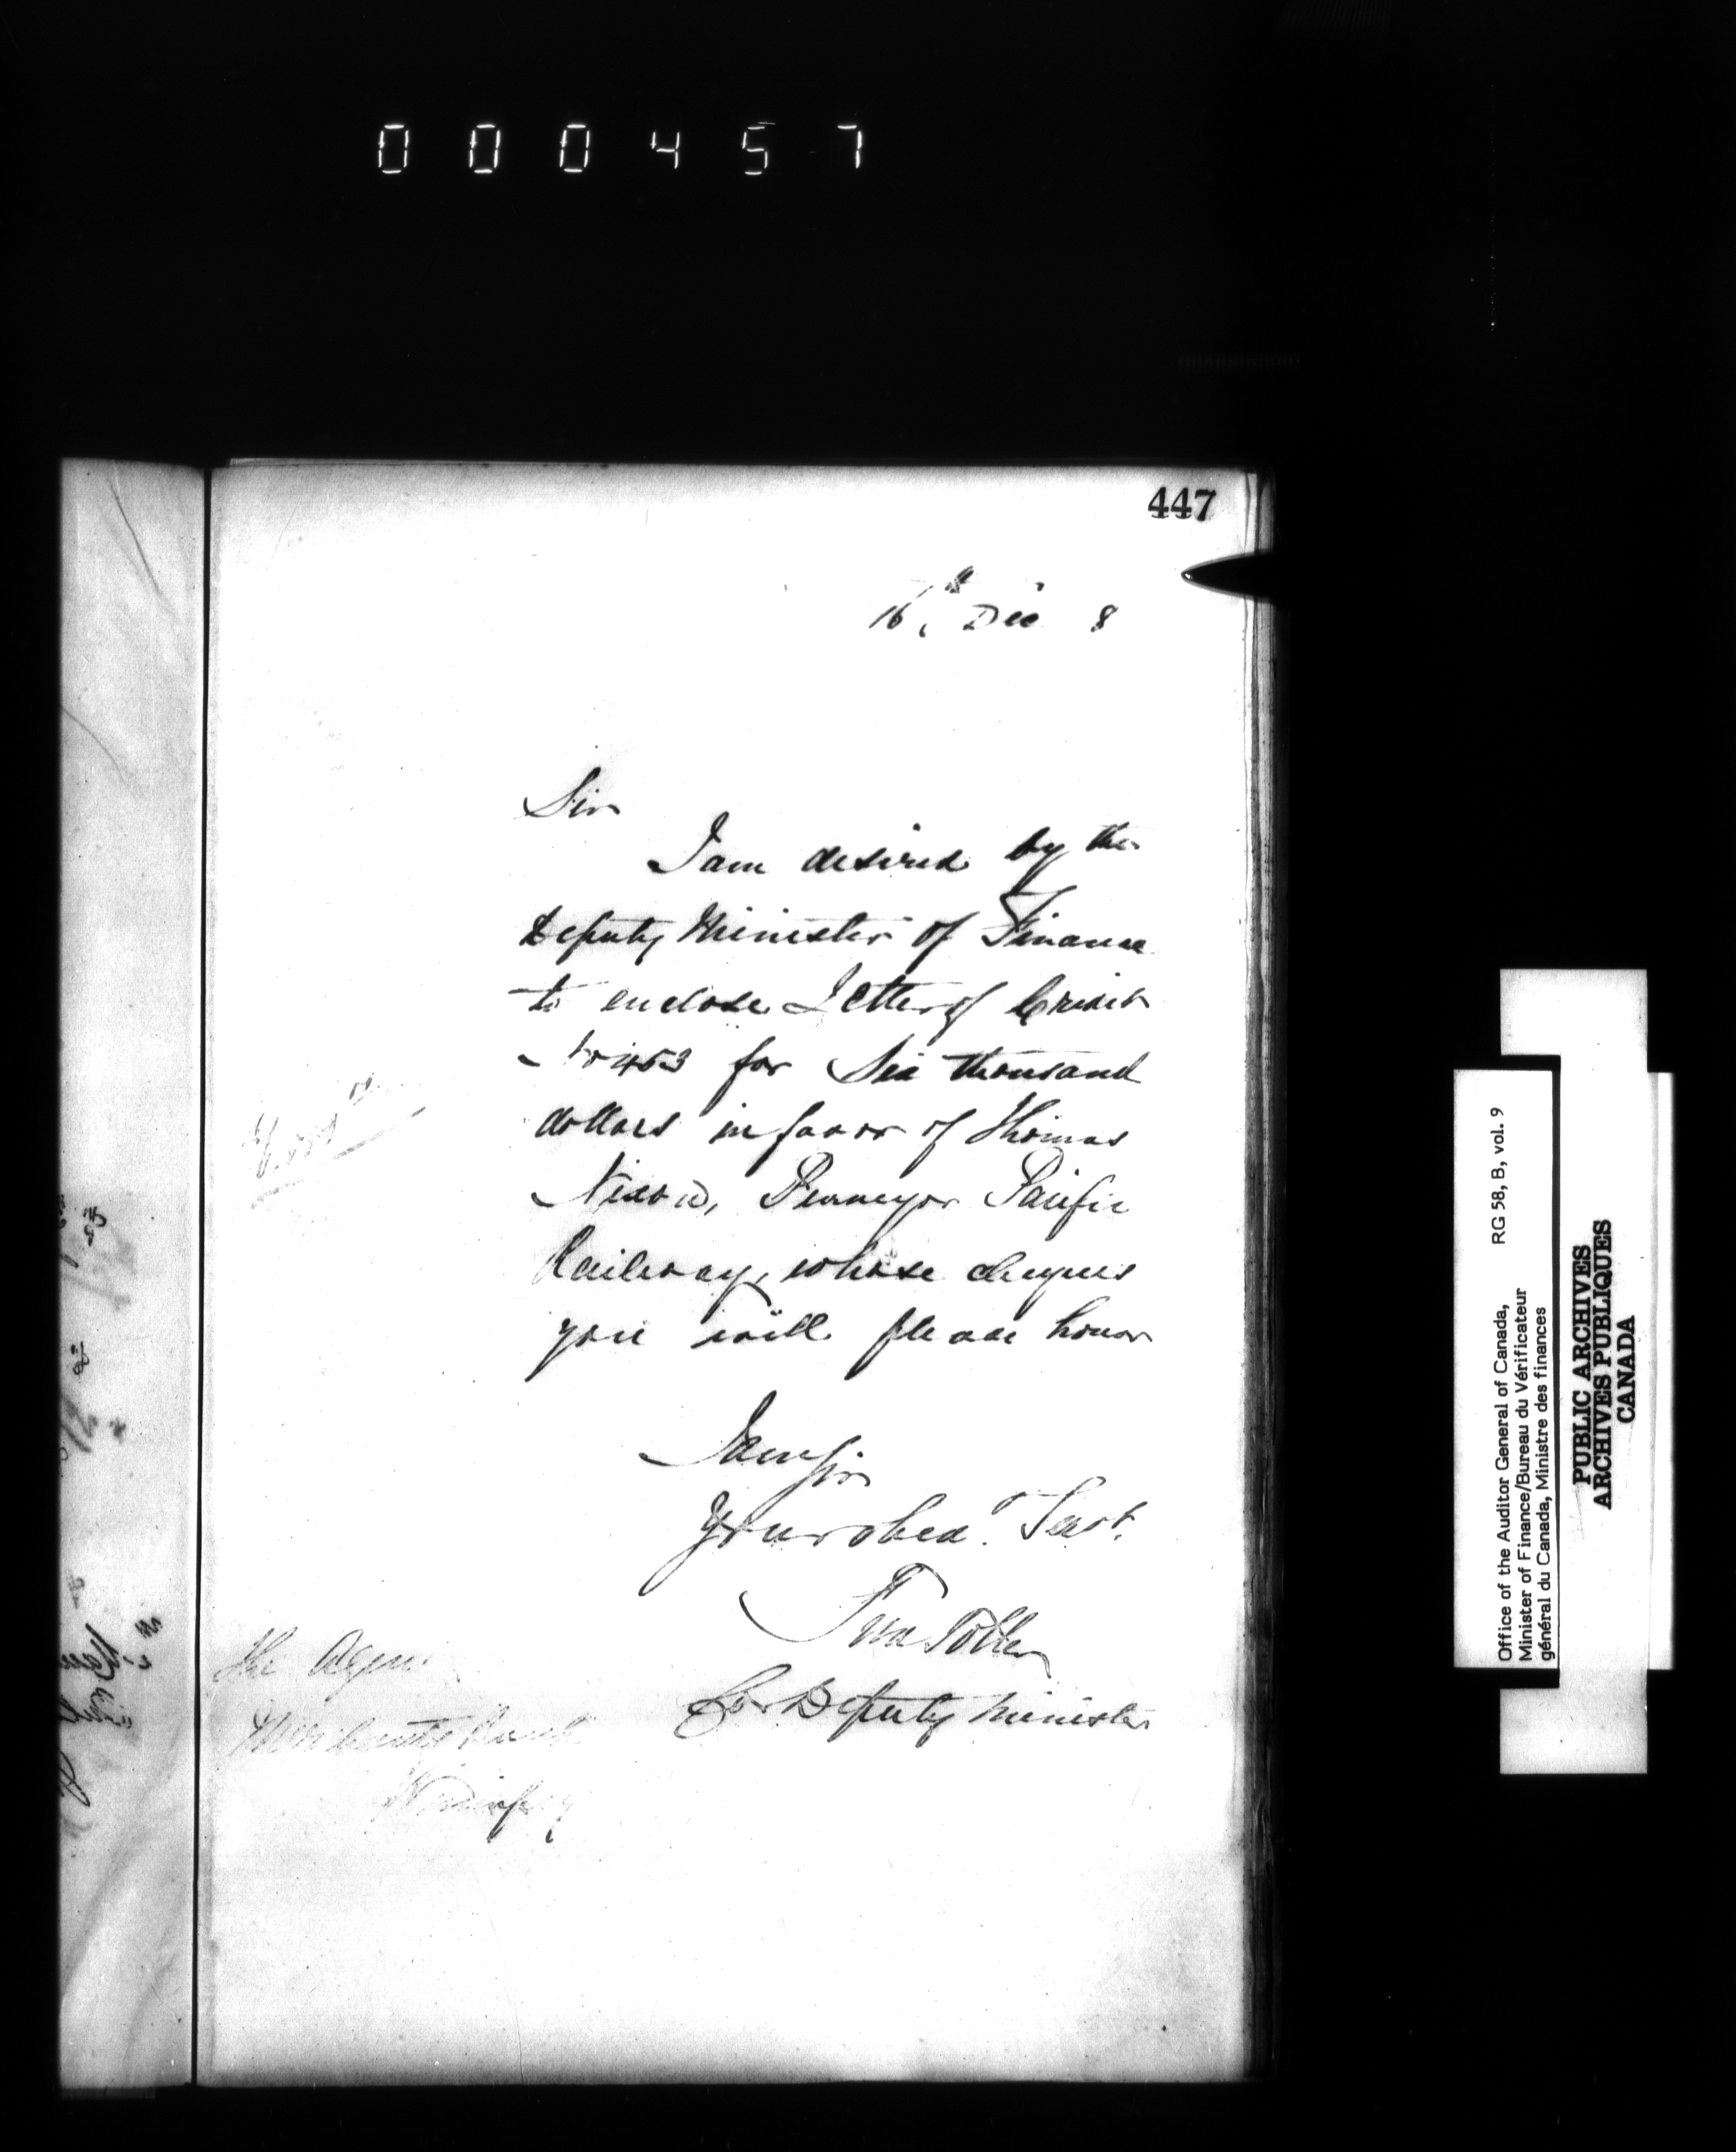 000457
447
16th Dec 8
Sir
I am desired by the
Deputy Minister of Finance
to enclose Letter of Credit
No 453 for Six thousand
dollars in favor of Thomas
Nixon, Purveyor Pacific
Railway, whose cheques
you will please honor
I am Sir
Your obed. Servt.
For Deputy Minister
The Agent
Merchants Bank
Winnipeg
Office of the Auditor General of Canada, RG 58, B, vol. 9
Minister of Finance/Bureau du Vérificateur
général du Canada, Ministre des finances
PUBLIC ARCHIVES
ARCHIVES PUBLIQUES
CANADA